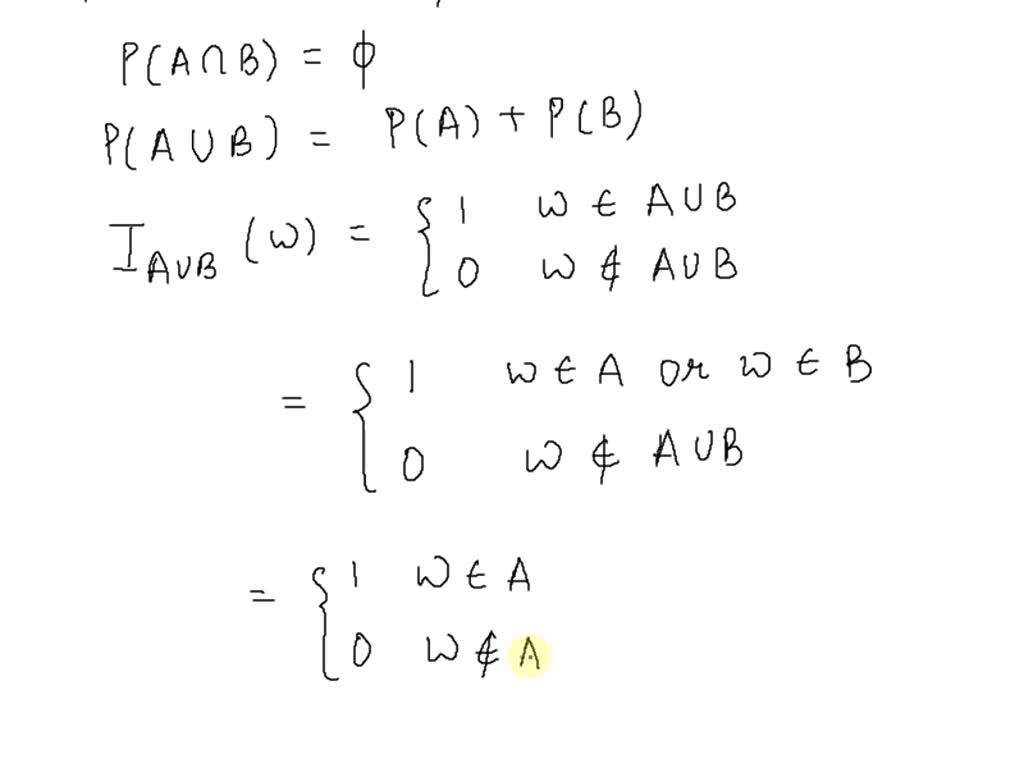 P(A∩B) = ϕ
P(A∪B) = P(A) + P(B)
I_{A∪B} (ω) = { 1 ω ∈ A∪B
0 ω ∉ A∪B
= { 1 ω ∈ A or ω ∈ B
0 ω ∉ A∪B
= { 1 ω ∈ A
0 ω ∉ A